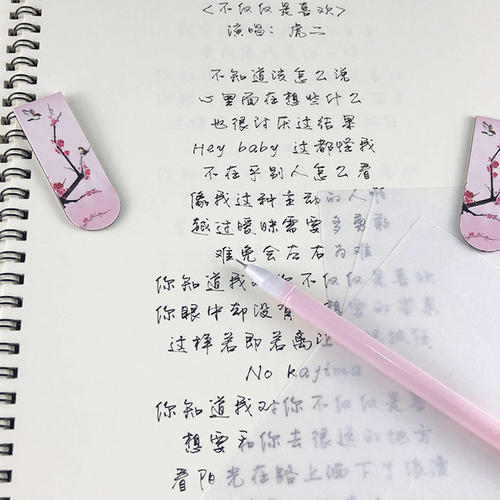 <不仅仅是喜欢>
演唱：虎二
不知道该怎么说
心里面在想些什么
也很讨厌这结果
Hey baby 这都怪我
不在乎别人怎么看
像我这种主动的人
越过暧昧需要多勇敢
难免会左右为难
你知道我对你不仅仅是喜欢
你眼中却没有 想要的答案
这样若即若离
No kajima
你知道我对你不仅仅是喜
想要和你去很远的地方
看阳光在路上洒下了浪漫